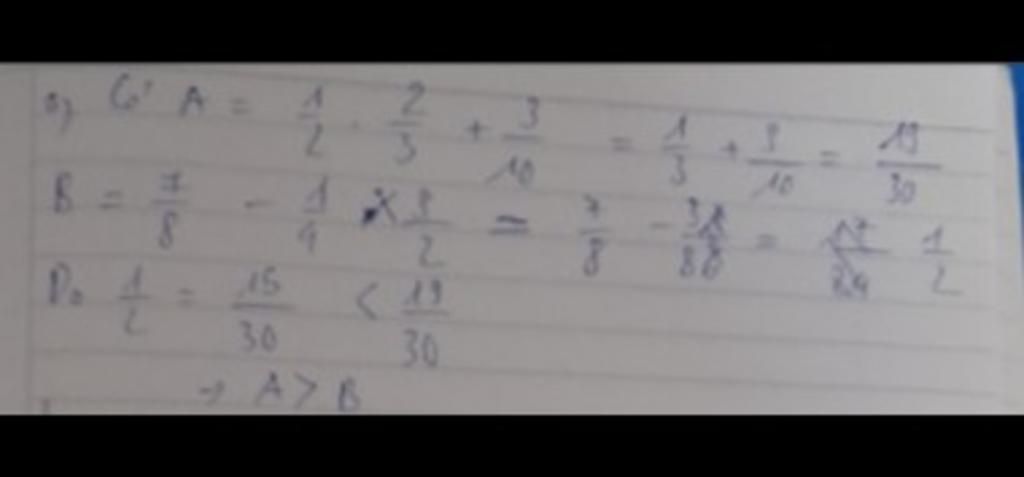 a) Có A = 1/2 . 2/3 + 3/10 = 1/3 + 3/10 = 19/30
B = 7/8 - 1/4 × 3/2 = 7/8 - 3/8 = 1/2
Do 1/2 = 15/30 < 19/30
→ A > B